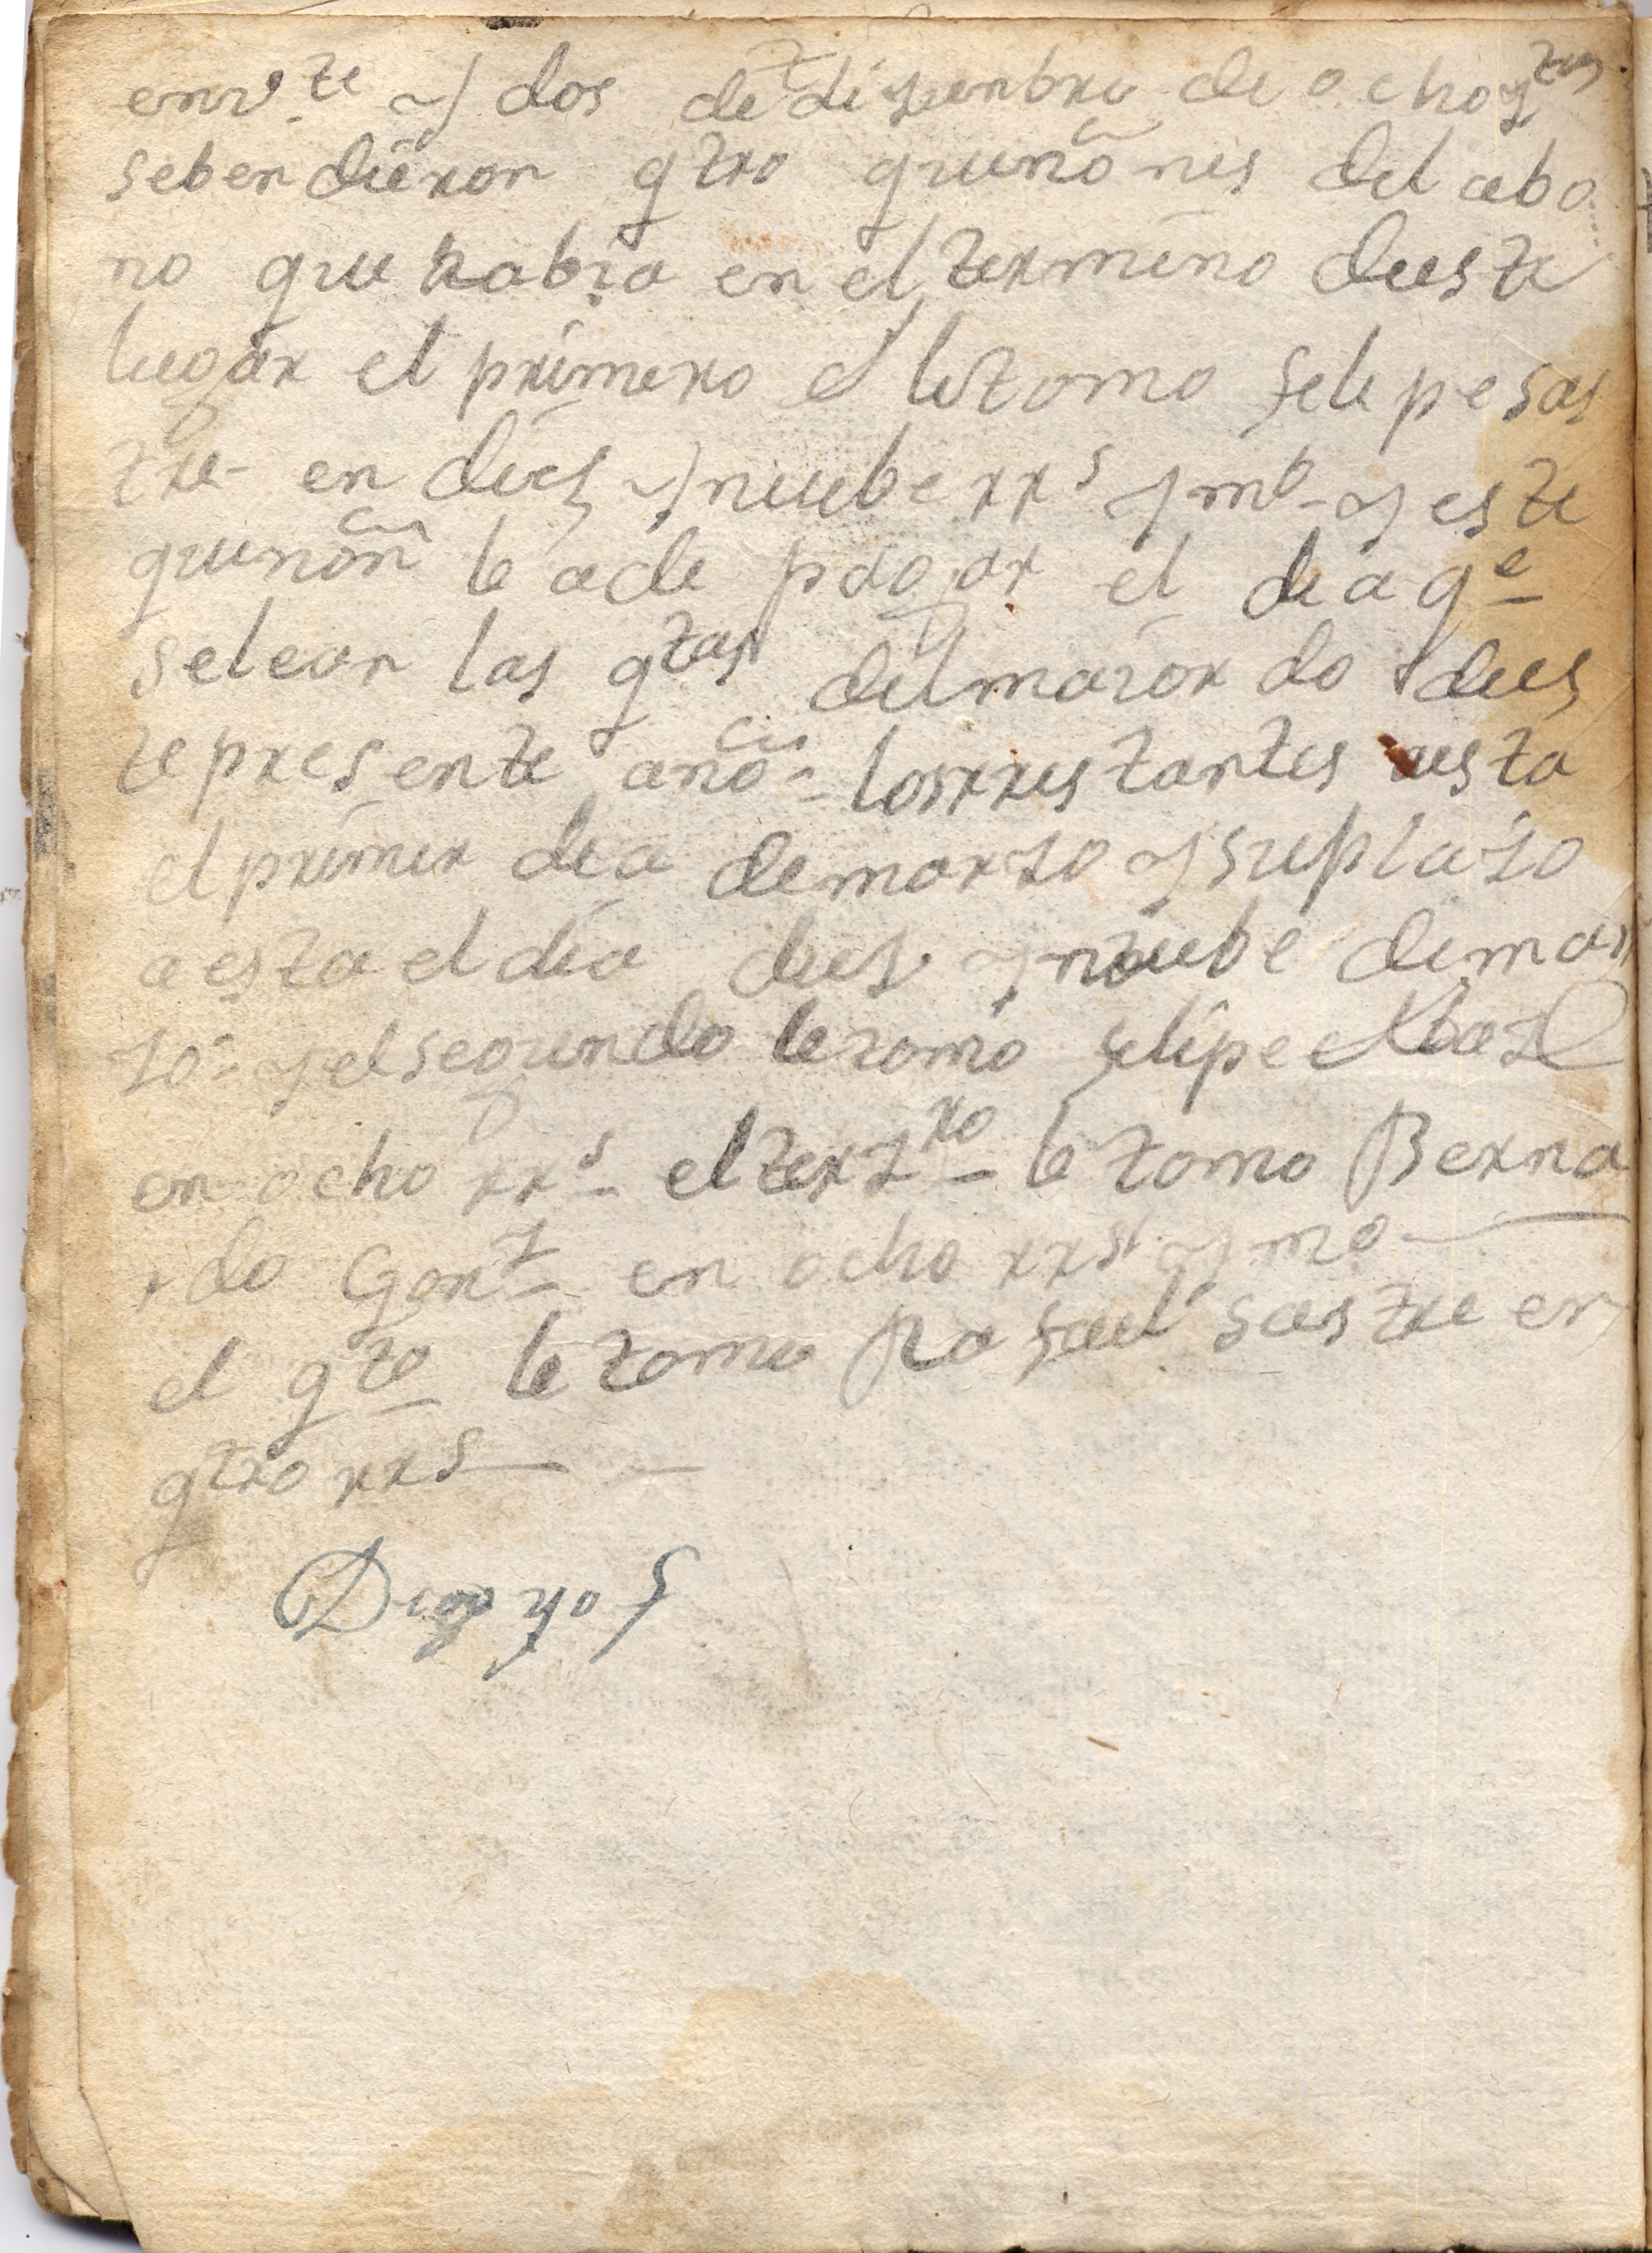 en v.te y dos de disienbre de ochosztos
sebendieron qtro quiñones del abo
no que habia en el termino deeste
lugar el primero e letomo felepe sas
tre en dies y nuebe rrs y mº y este
quiñon le a de pagar el dia qe
selean las qtas del maiordo dees
te presente año los rrestantes aesta
el primer dia de marzo y su plazo
aesta el dia dies y nuebe de mar
zo y el segundo le tomo felipe
en ocho rrs el terzro le tomo Berna
rdo Gonz en ocho rrs y mo
el qto le tomo Rafael sastre en
qtro rrs